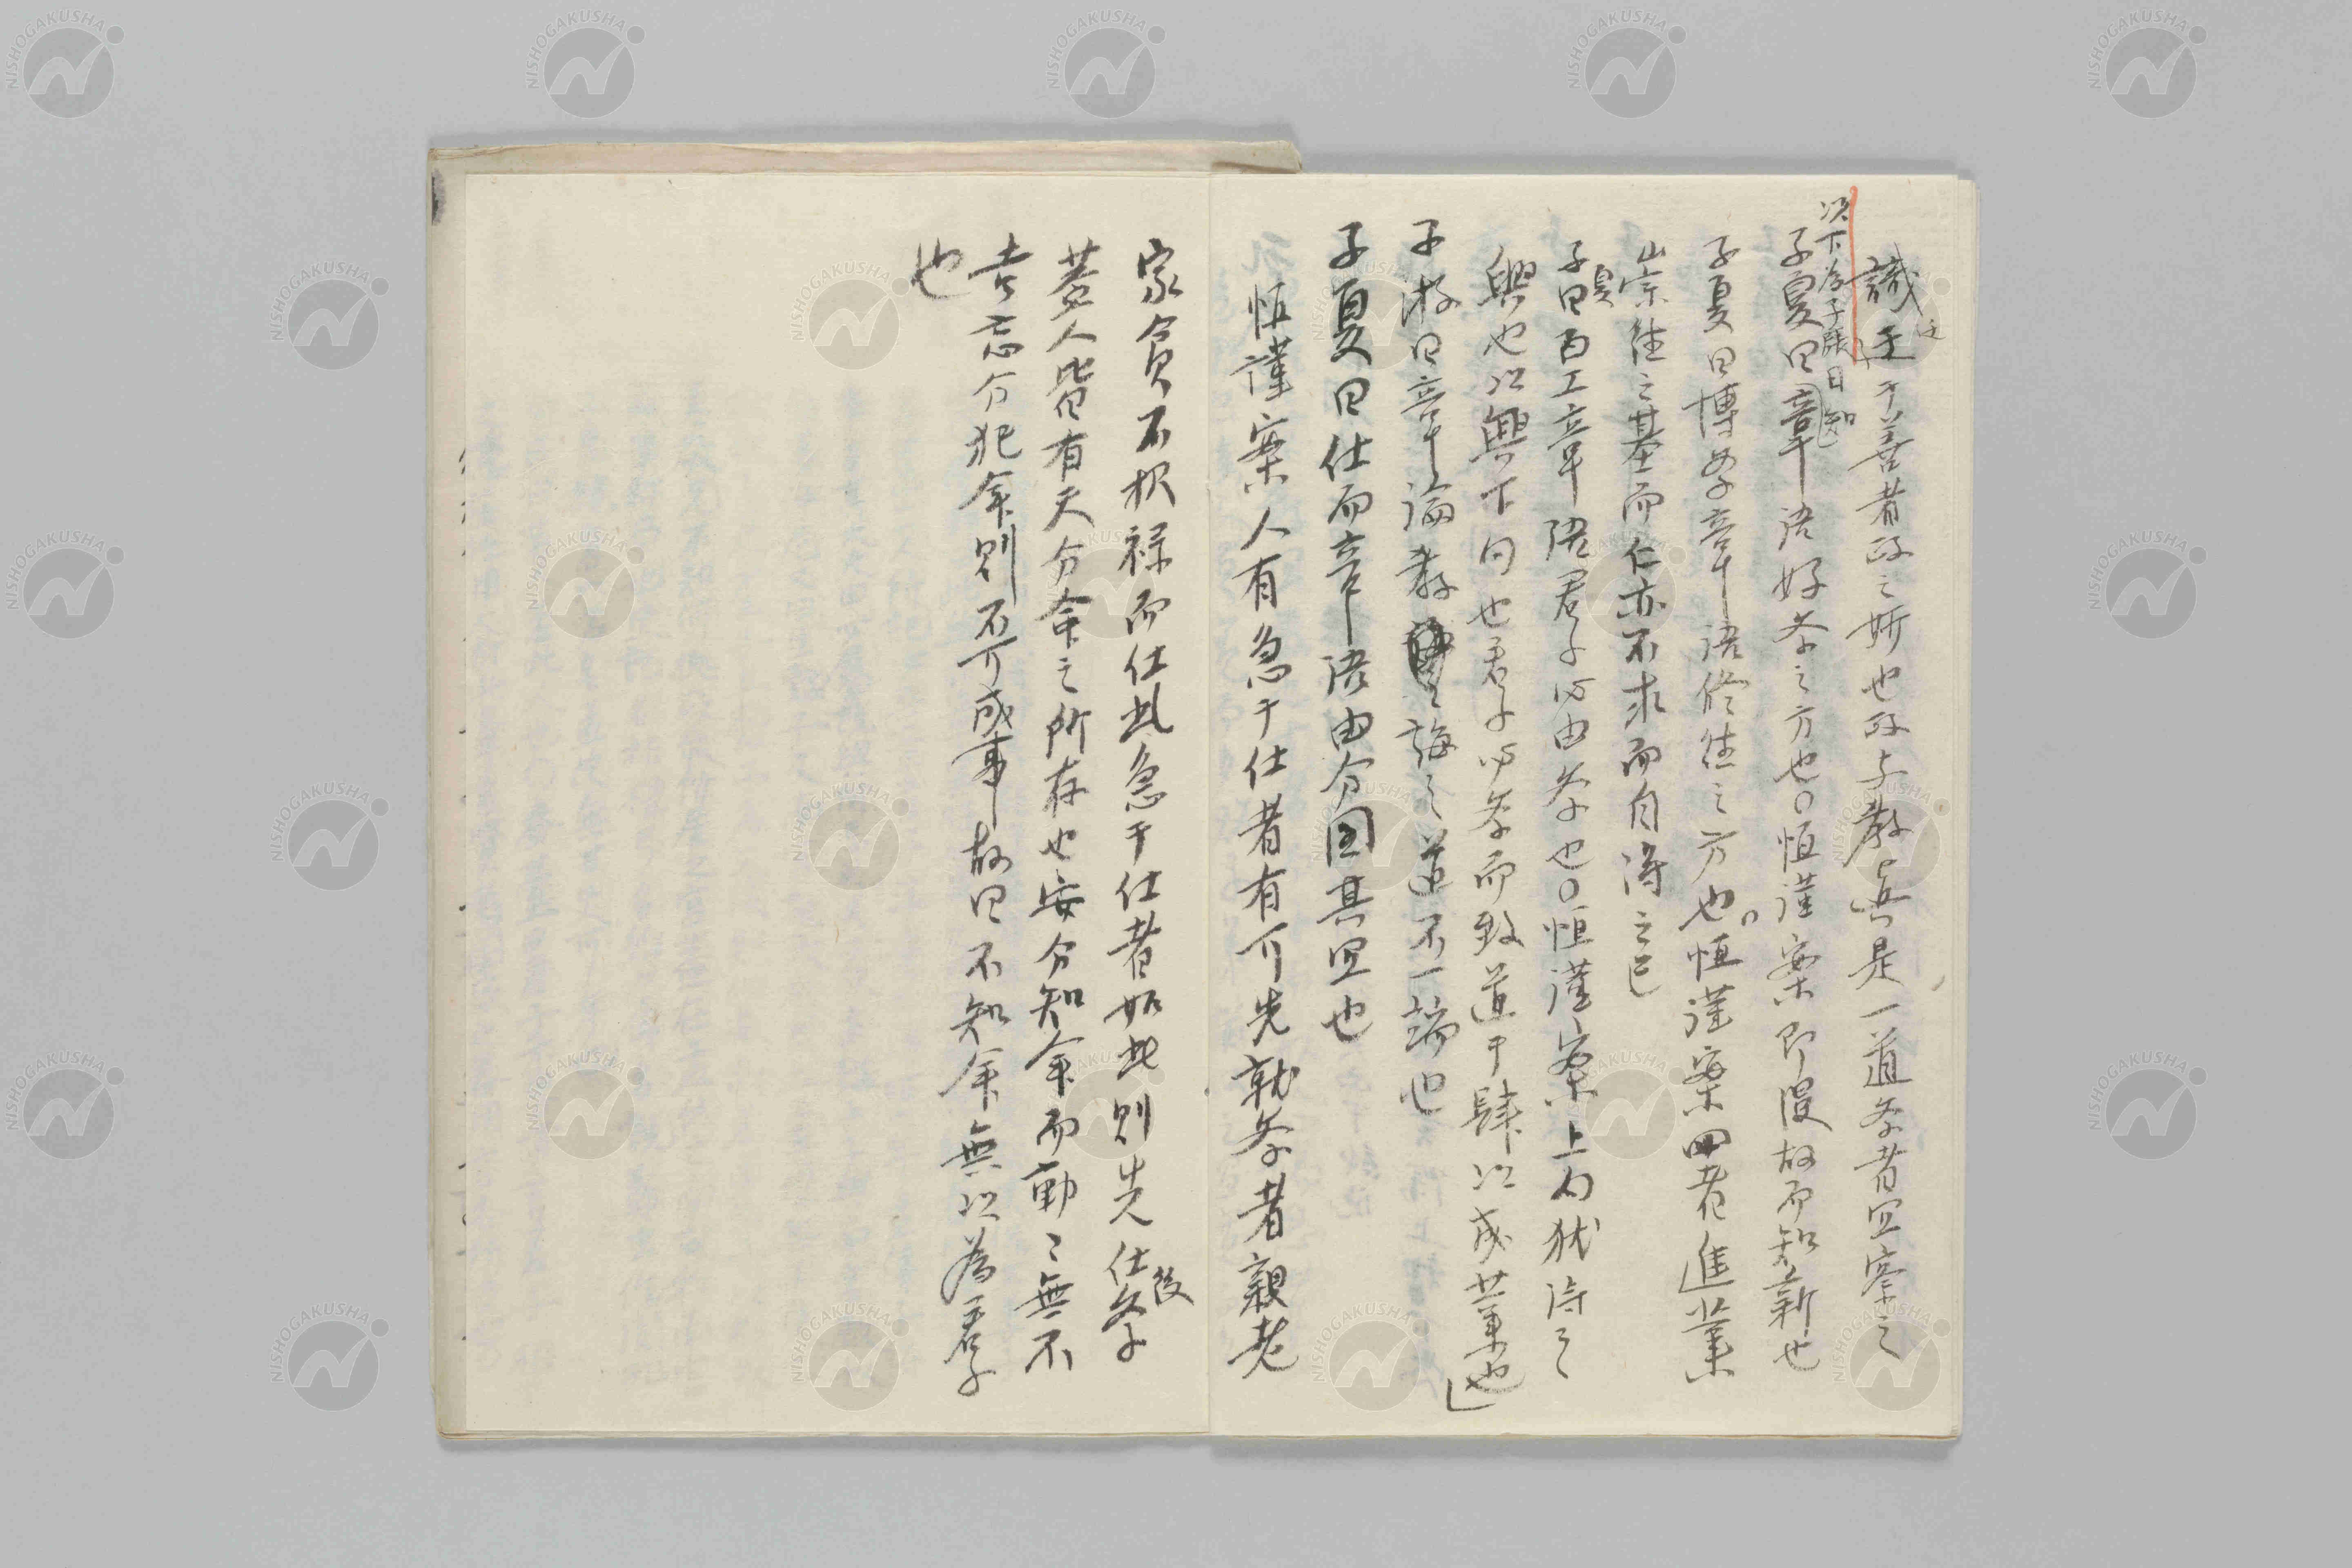 識迂于善者政之妍也政与教兵是一道孝者宜察之
以下為子張日知
子夏曰章語好孝之方也〇恒謹案即温故而知新也
子夏曰博孝章語修徳之方也〇恒謹案四者進業
崇徳之基而仁亦不求而自得之已
子夏曰百工章語君子必由孝也〇恒謹案上内状詩之
興也以興下句也君子必孝而致道于肆以成業也
子游曰章論教誨之道不一端也
子夏曰仕而章語由分固其宜也
恒謹案人有急于仕者有可先就孝者親老
家貧不択禄而仕此急于仕者如此則先仕後孝
蓋人皆有天分命之所存也安分知命而勤〻無不
吉忘分犯命則不可成事故曰不知命無以為君子
也
NISHOGAKUSHA